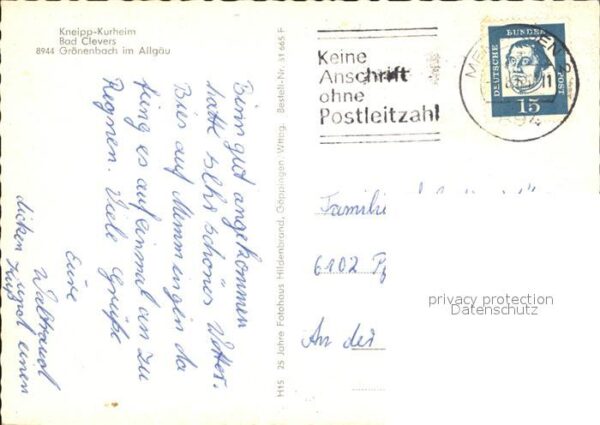 Kneipp-Kurheim
Bad Clevers
8944 Grönenbach im Allgäu
Keine
Anschrift
ohne
Postleitzahl
DEUTSCHE BUNDESPOST
15
Binn gut angekommen
hatte sehr schönes Wetter.
Bies auf Memmingen da
fing es auf einmal an zu
Regnen. Viele Grüße
Eure
Waltraud
und einen
dicken Kuß
H15 25 Jahre Fotohaus Hildenbrand, Göppingen, Wttbg. Bestell-Nr. 31 665 F
Familie
6102
An der
privacy protection
Datenschutz